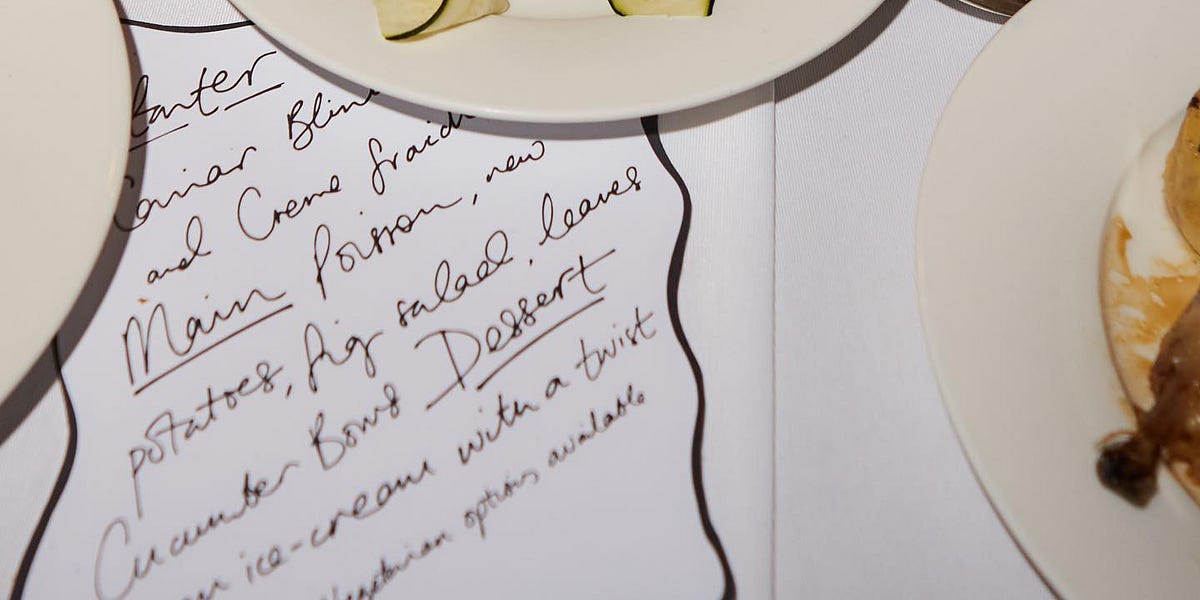 tarter
Caviar Blini
and Creme fraich
Main Poisson, new
potatoes, fig salad, leaves
Cucumber Bows Dessert
ice-cream with a twist
Vegetarian options available